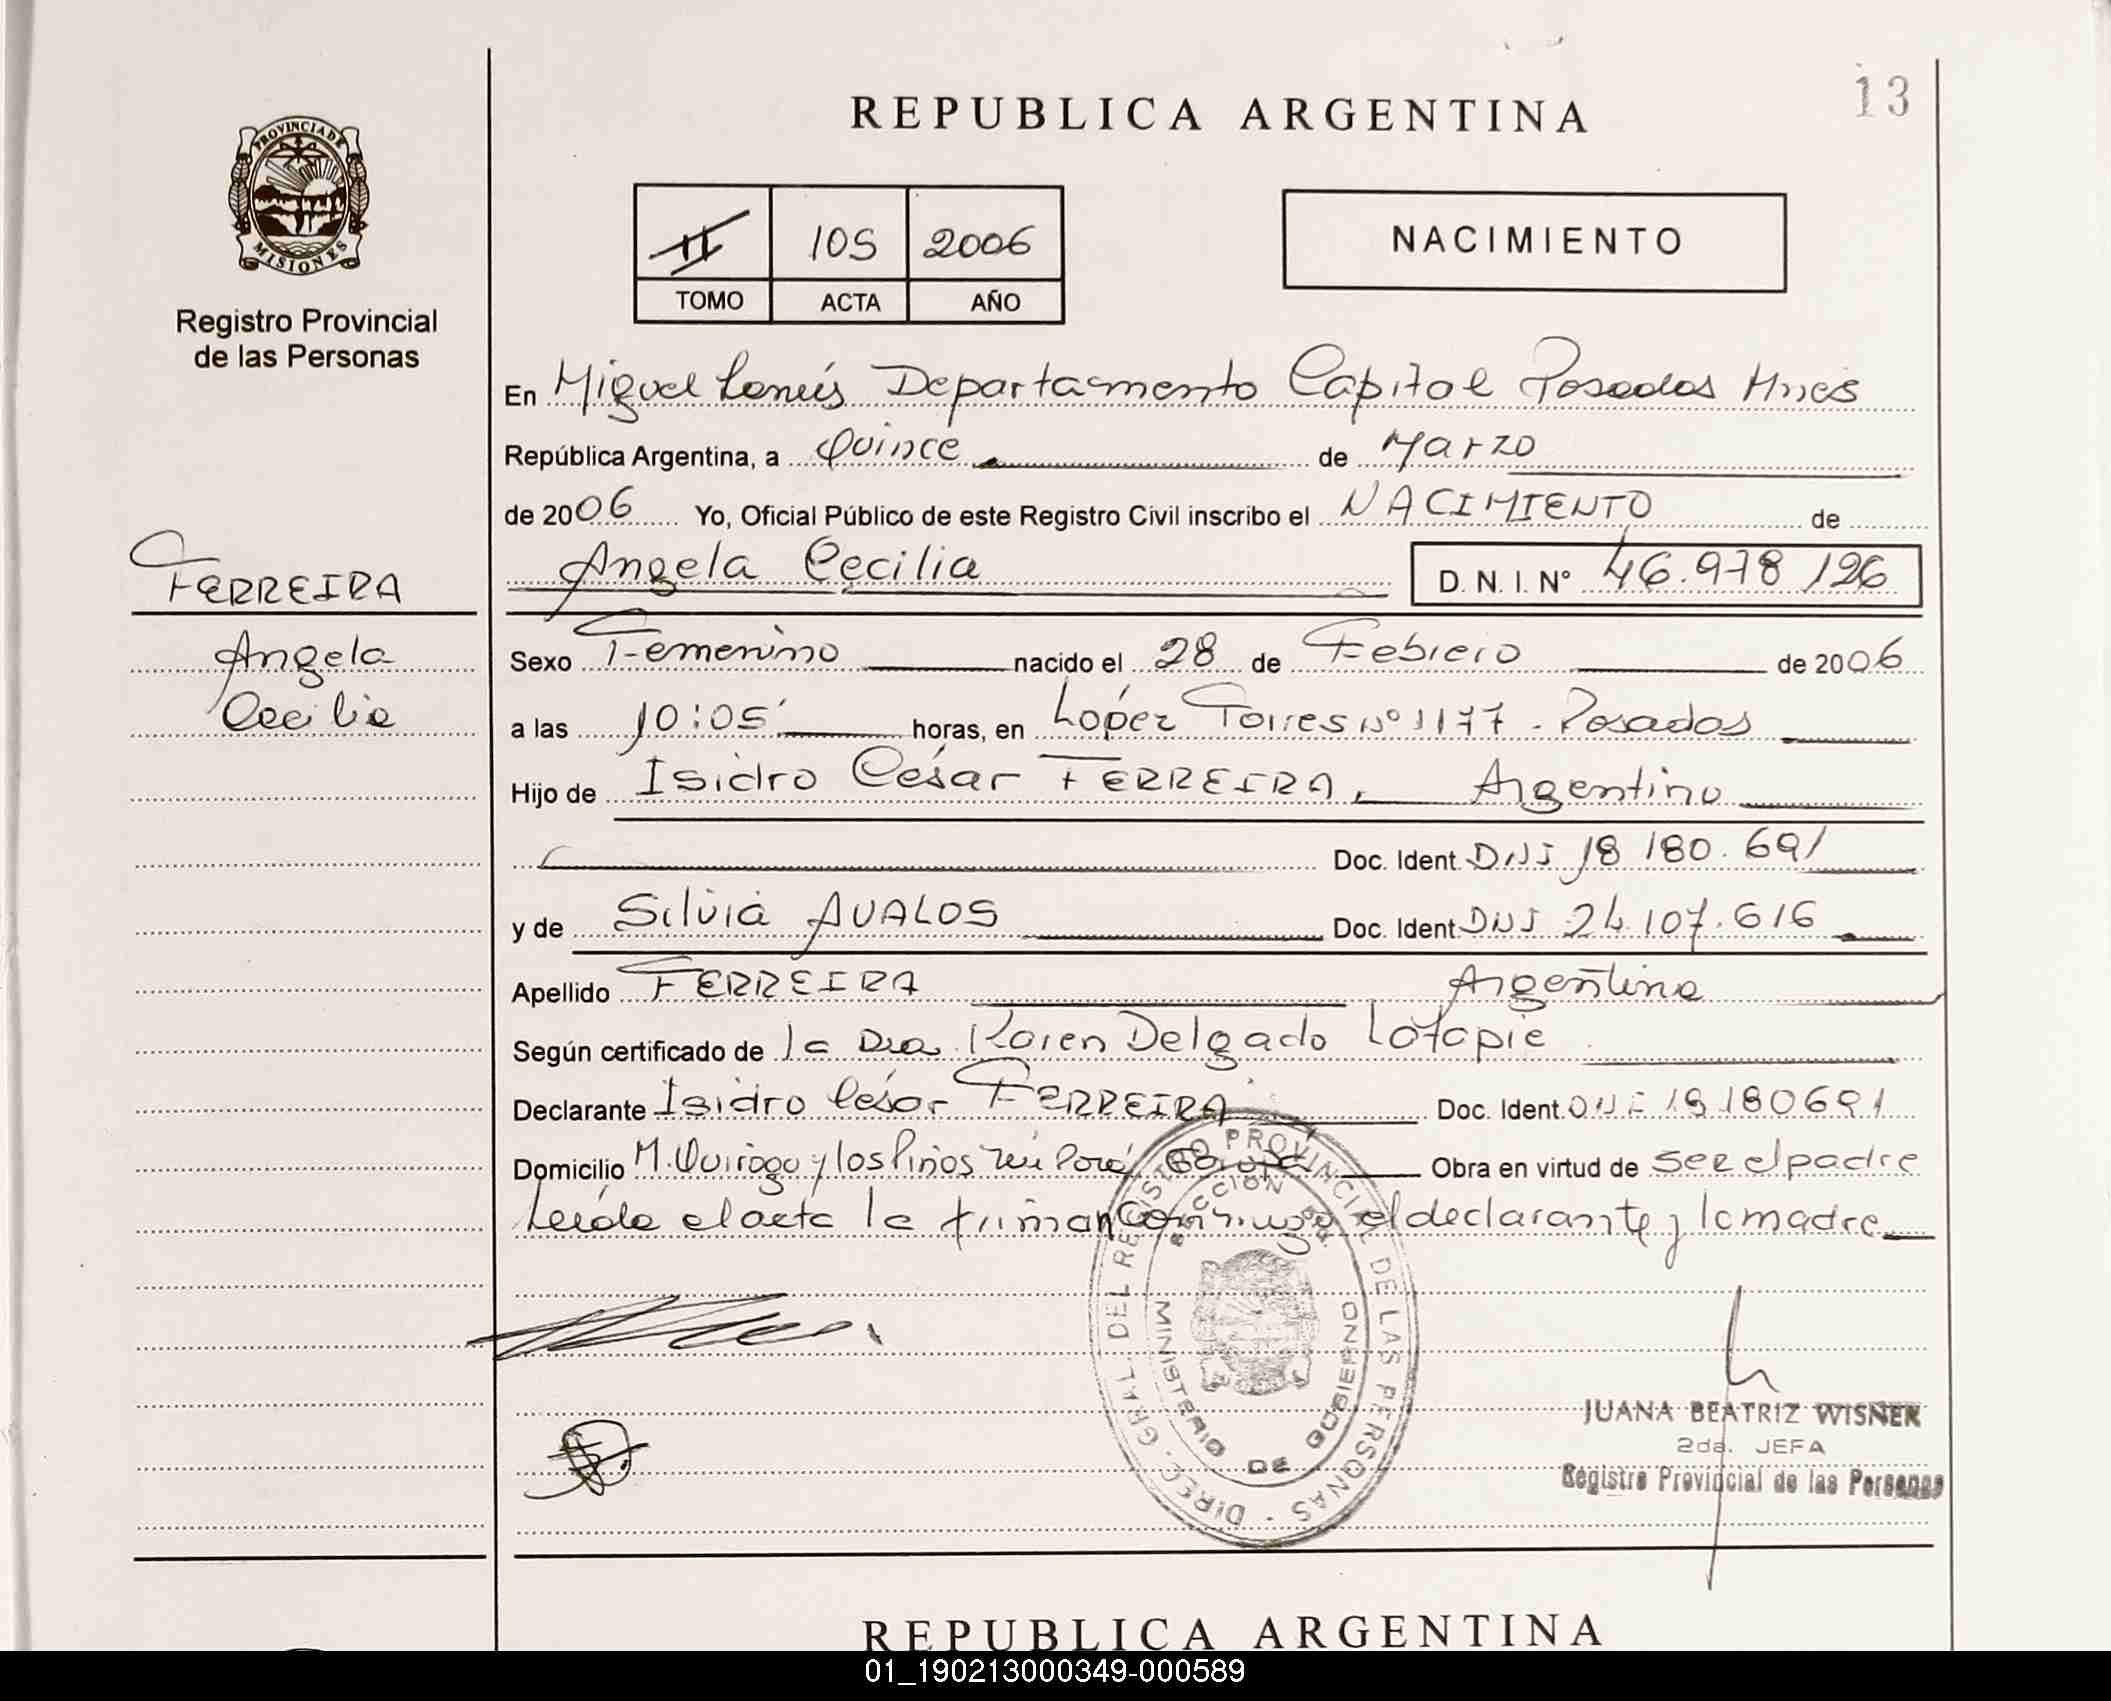 13
REPUBLICA ARGENTINA
PROVINCIA DE
MISIONES
Registro Provincial
de las Personas
II 105 2006
TOMO ACTA AÑO
NACIMIENTO
En Miguel Lanús Departamento Capital Posadas Mnes
República Argentina, a Quince de Marzo
de 2006 Yo, Oficial Público de este Registro Civil inscribo el NACIMIENTO de
Angela Cecilia D. N. I. Nº 46.978.126
FERREIRA
Angela
Cecilia
Sexo Femenino nacido el 28 de Febrero de 2006
a las 10:05' horas, en López Torres nº 1177 - Posadas
Hijo de Isidro César FERREIRA, Argentino
Doc. Ident. DNI 18.180.691
y de Silvia AVALOS Doc. Ident. DNI 24.107.616
Apellido FERREIRA Argentina
Según certificado de la Dra. Karen Delgado Latapie
Declarante Isidro César FERREIRA Doc. Ident. DNI 18180691
Domicilio M. Quiroga y los Pinos Obra en virtud de ser el padre
Leída el acta la firman conmigo el declarante y la madre
DIREC. GRAL. DEL REGISTRO PROVINCIAL DE LAS PERSONAS
MINISTERIO DE GOBIERNO
JUANA BEATRIZ WISNER
2da. JEFA
Registro Provincial de las Personas
REPUBLICA ARGENTINA
01_190213000349-000589